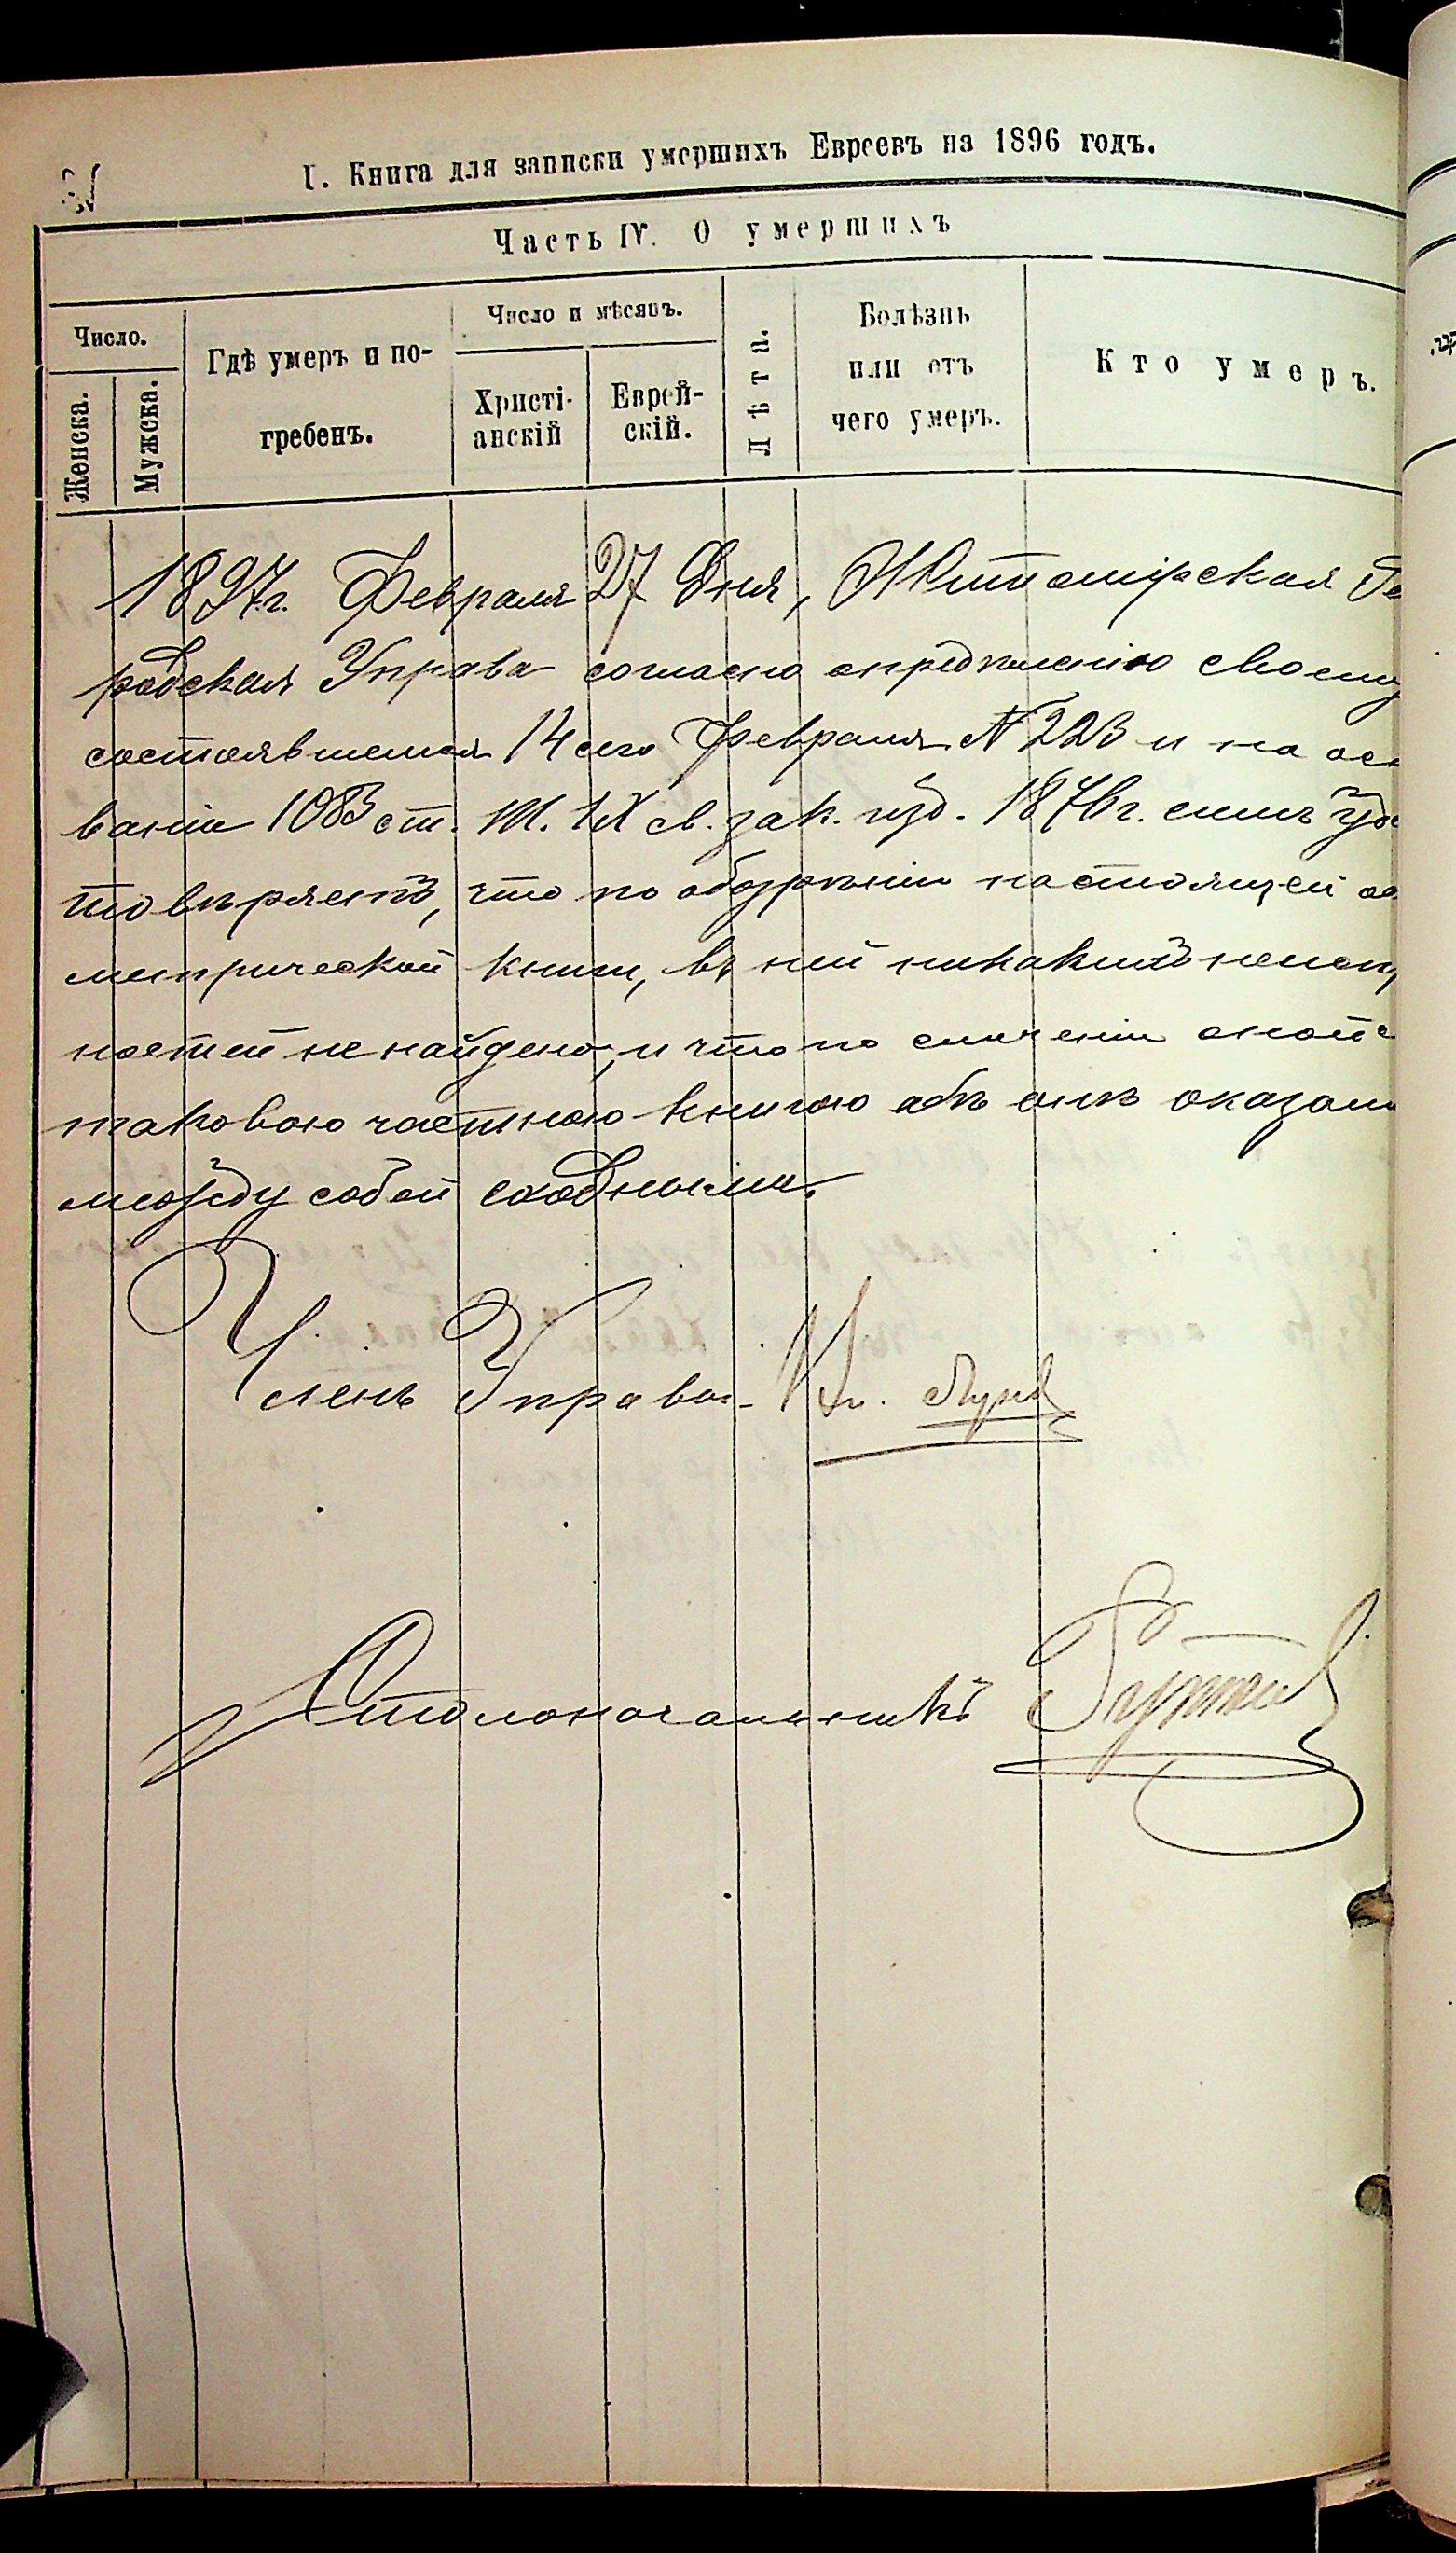 I. Книга для записки умершихъ Евреевъ на 1896 годъ.
Часть IV. О умершихъ
Число.
Женска.
Мужска.
Гдѣ умеръ и по-
гребенъ.
Число и мѣсяцъ.
Христі-
анскій
Еврей-
скій.
Лѣта.
Болѣзнь
или отъ
чего умеръ.
Кто умеръ.
1897г. Февраля 27 дня, Житомірская Го
родская Управа согласно опредѣленію своему
состоявшемся 14 сего Февраля № 223 и на осн
ваніи 1083 ст. т. IX св. зак. изд. 1876 г. симъ удо
товѣряетъ, что по обозрѣніи настоящей
метрической книги, въ ней никакихъ неисп
ностей не найдено, и что по сличеніи оной с
таковою частною книгою обѣ онѣ оказали
между собой сходными.
Членъ Управы
Столоначальникъ